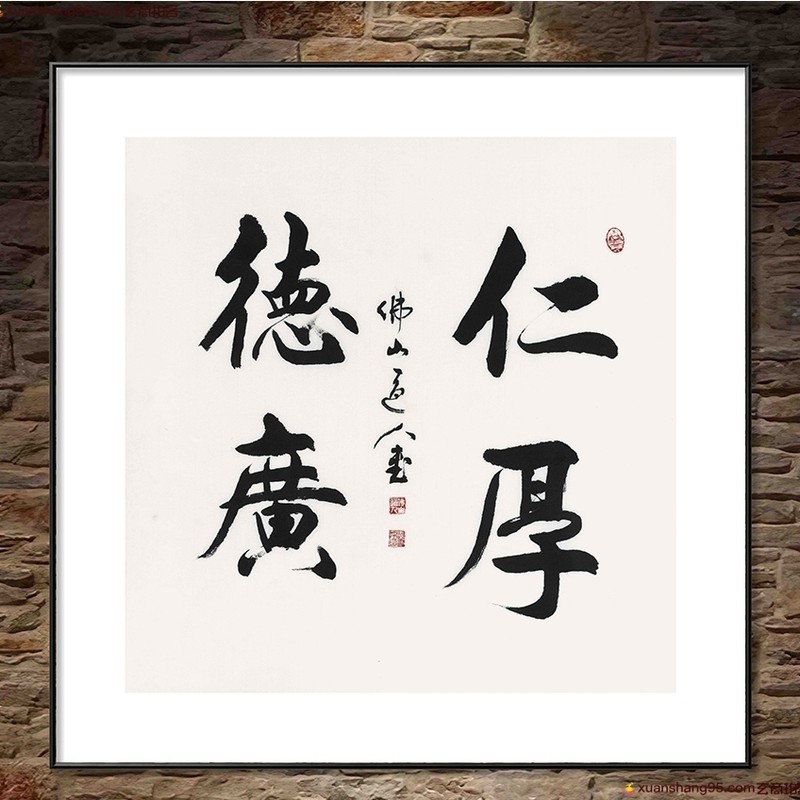 仁厚
德廣
佛山道人書
xuanshang95.com